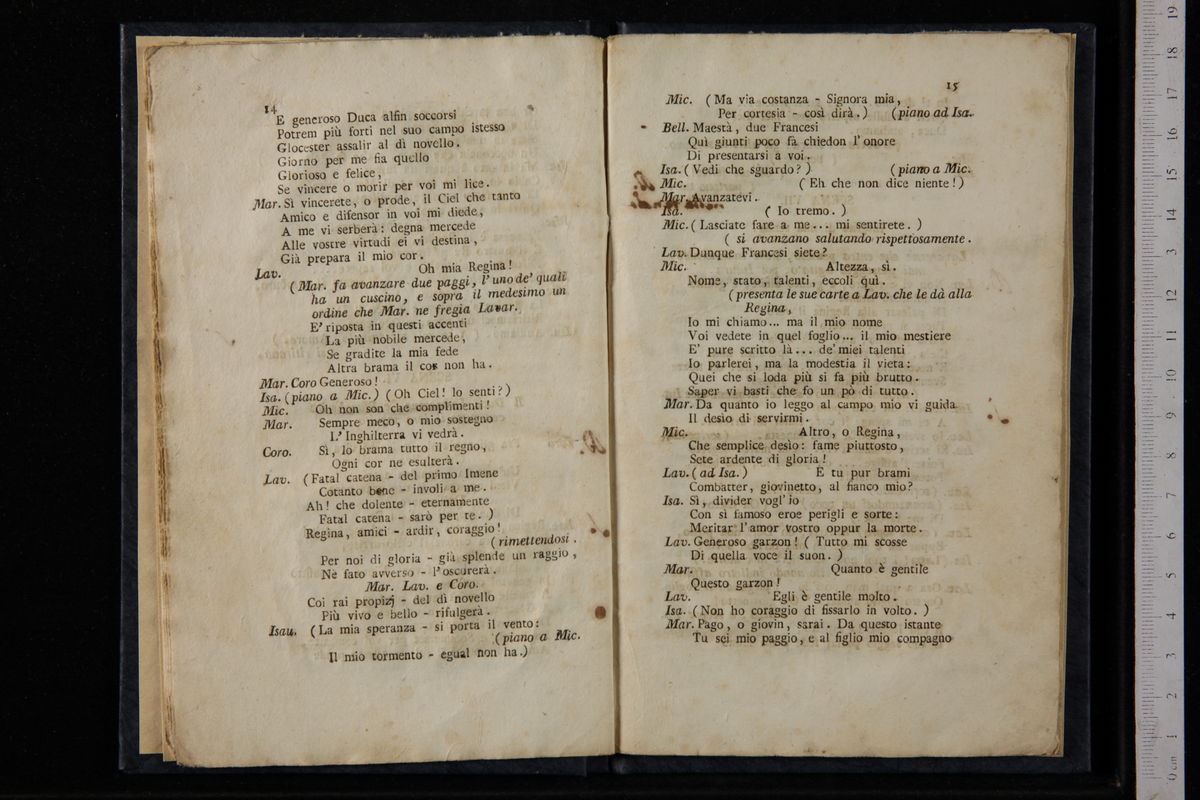 14
E generoso Duca alfin soccorsi
Potrem più forti nel suo campo istesso
Glocester assalir al dì novello.
Giorno per me fia quello
Glorioso e felice,
Se vincere o morir per voi mi lice.
Mar. Sì vincerete, o prode, il Ciel che tanto
Amico e difensor in voi mi diede,
A me vi serberà: degna mercede
Alle vostre virtudi ei vi destina,
Già prepara il mio cor.
Lav. Oh mia Regina!
(Mar. fa avanzare due paggi, l'uno de' quali
ha un cuscino, e sopra il medesimo un
ordine che Mar. ne fregia Lavar.
E' riposta in questi accenti
La più nobile mercede,
Se gradite la mia fede
Altra brama il cor non ha.
Mar. Coro Generoso!
Isa. (piano a Mic.) (Oh Ciel! lo senti?)
Mic. Oh non son che complimenti!
Mar. Sempre meco, o mio sostegno
L' Inghilterra vi vedrà.
Coro. Sì, lo brama tutto il regno,
Ogni cor ne esulterà.
Lav. (Fatal catena - del primo Imene
Cotanto bene - involi a me.
Ah! che dolente - eternamente
Fatal catena - sarò per te. )
Regina, amici - ardir, coraggio!
(rimettendosi.
Per noi di gloria - già splende un raggio,
Nè fato avverso - l'oscurerà.
Mar. Lav. e Coro.
Coi rai propizj - del dì novello
Più vivo e bello - rifulgerà.
Isau. (La mia speranza - si porta il vento:
(piano a Mic.
Il mio tormento - egual non ha.)
15
Mic. (Ma via costanza - Signora mia,
Per cortesia - così dirà.) (piano ad Isa.
Bell. Maestà, due Francesi
Quì giunti poco fà chiedon l'onore
Di presentarsi a voi.
Isa. (Vedi che sguardo?) (piano a Mic.
Mic. (Eh che non dice niente!)
Mar. Avanzatevi.
Isa. ( Io tremo. )
Mic. (Lasciate fare a me... mi sentirete. )
( si avanzano salutando rispettosamente.
Lav. Dunque Francesi siete?
Mic. Altezza, sì.
Nome, stato, talenti, eccoli quì.
(presenta le sue carte a Lav. che le dà alla
Regina,
Io mi chiamo... ma il mio nome
Voi vedete in quel foglio... il mio mestiere
E' pure scritto là... de' miei talenti
Io parlerei, ma la modestia il vieta:
Quei che si loda più si fa più brutto.
Saper vi basti che fo un pò di tutto.
Mar. Da quanto io leggo al campo mio vi guida
Il desìo di servirmi.
Mic. Altro, o Regina,
Che semplice desìo: fame piuttosto,
Sete ardente di gloria!
Lav. (ad Isa.) E tu pur brami
Combatter, giovinetto, al fianco mio?
Isa. Sì, divider vogl' io
Con sì famoso eroe perigli e sorte:
Meritar l'amor vostro oppur la morte.
Lav. Generoso garzon! ( Tutto mi scosse
Di quella voce il suon. )
Mar. Quanto è gentile
Questo garzon!
Lav. Egli è gentile molto.
Isa. (Non ho coraggio di fissarlo in volto. )
Mar. Pago, o giovin, sarai. Da questo istante
Tu sei mio paggio, e al figlio mio compagno
0 cm 1 2 3 4 5 6 7 8 9 10 11 12 13 14 15 16 17 18 19